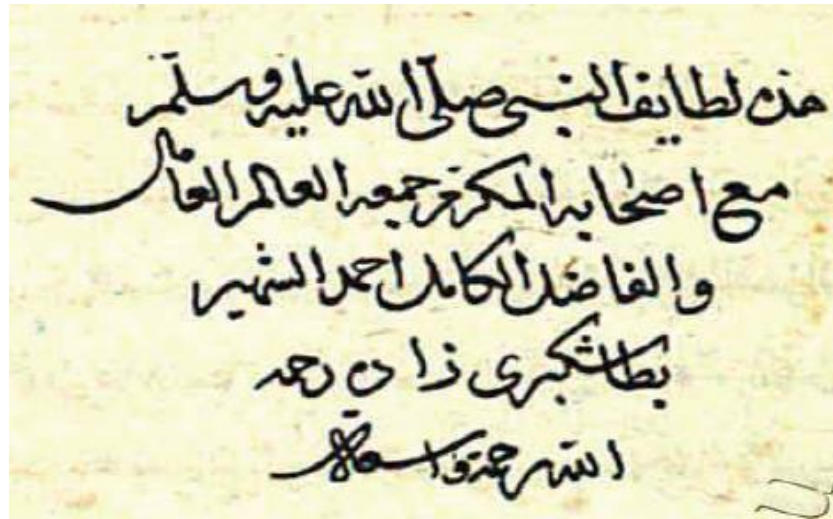 هذه لطايف النبى صلى الله عليه وسلم
مع اصحابه المكرم جمعه العالم العامل
والفاضل الكامل احمد الشهير
بطاشكبرى زاده رحمه
الله رحمة واسعة